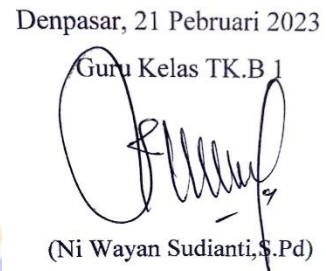 Denpasar, 21 Pebruari 2023
Guru Kelas TK.B 1
(Ni Wayan Sudianti,S.Pd)